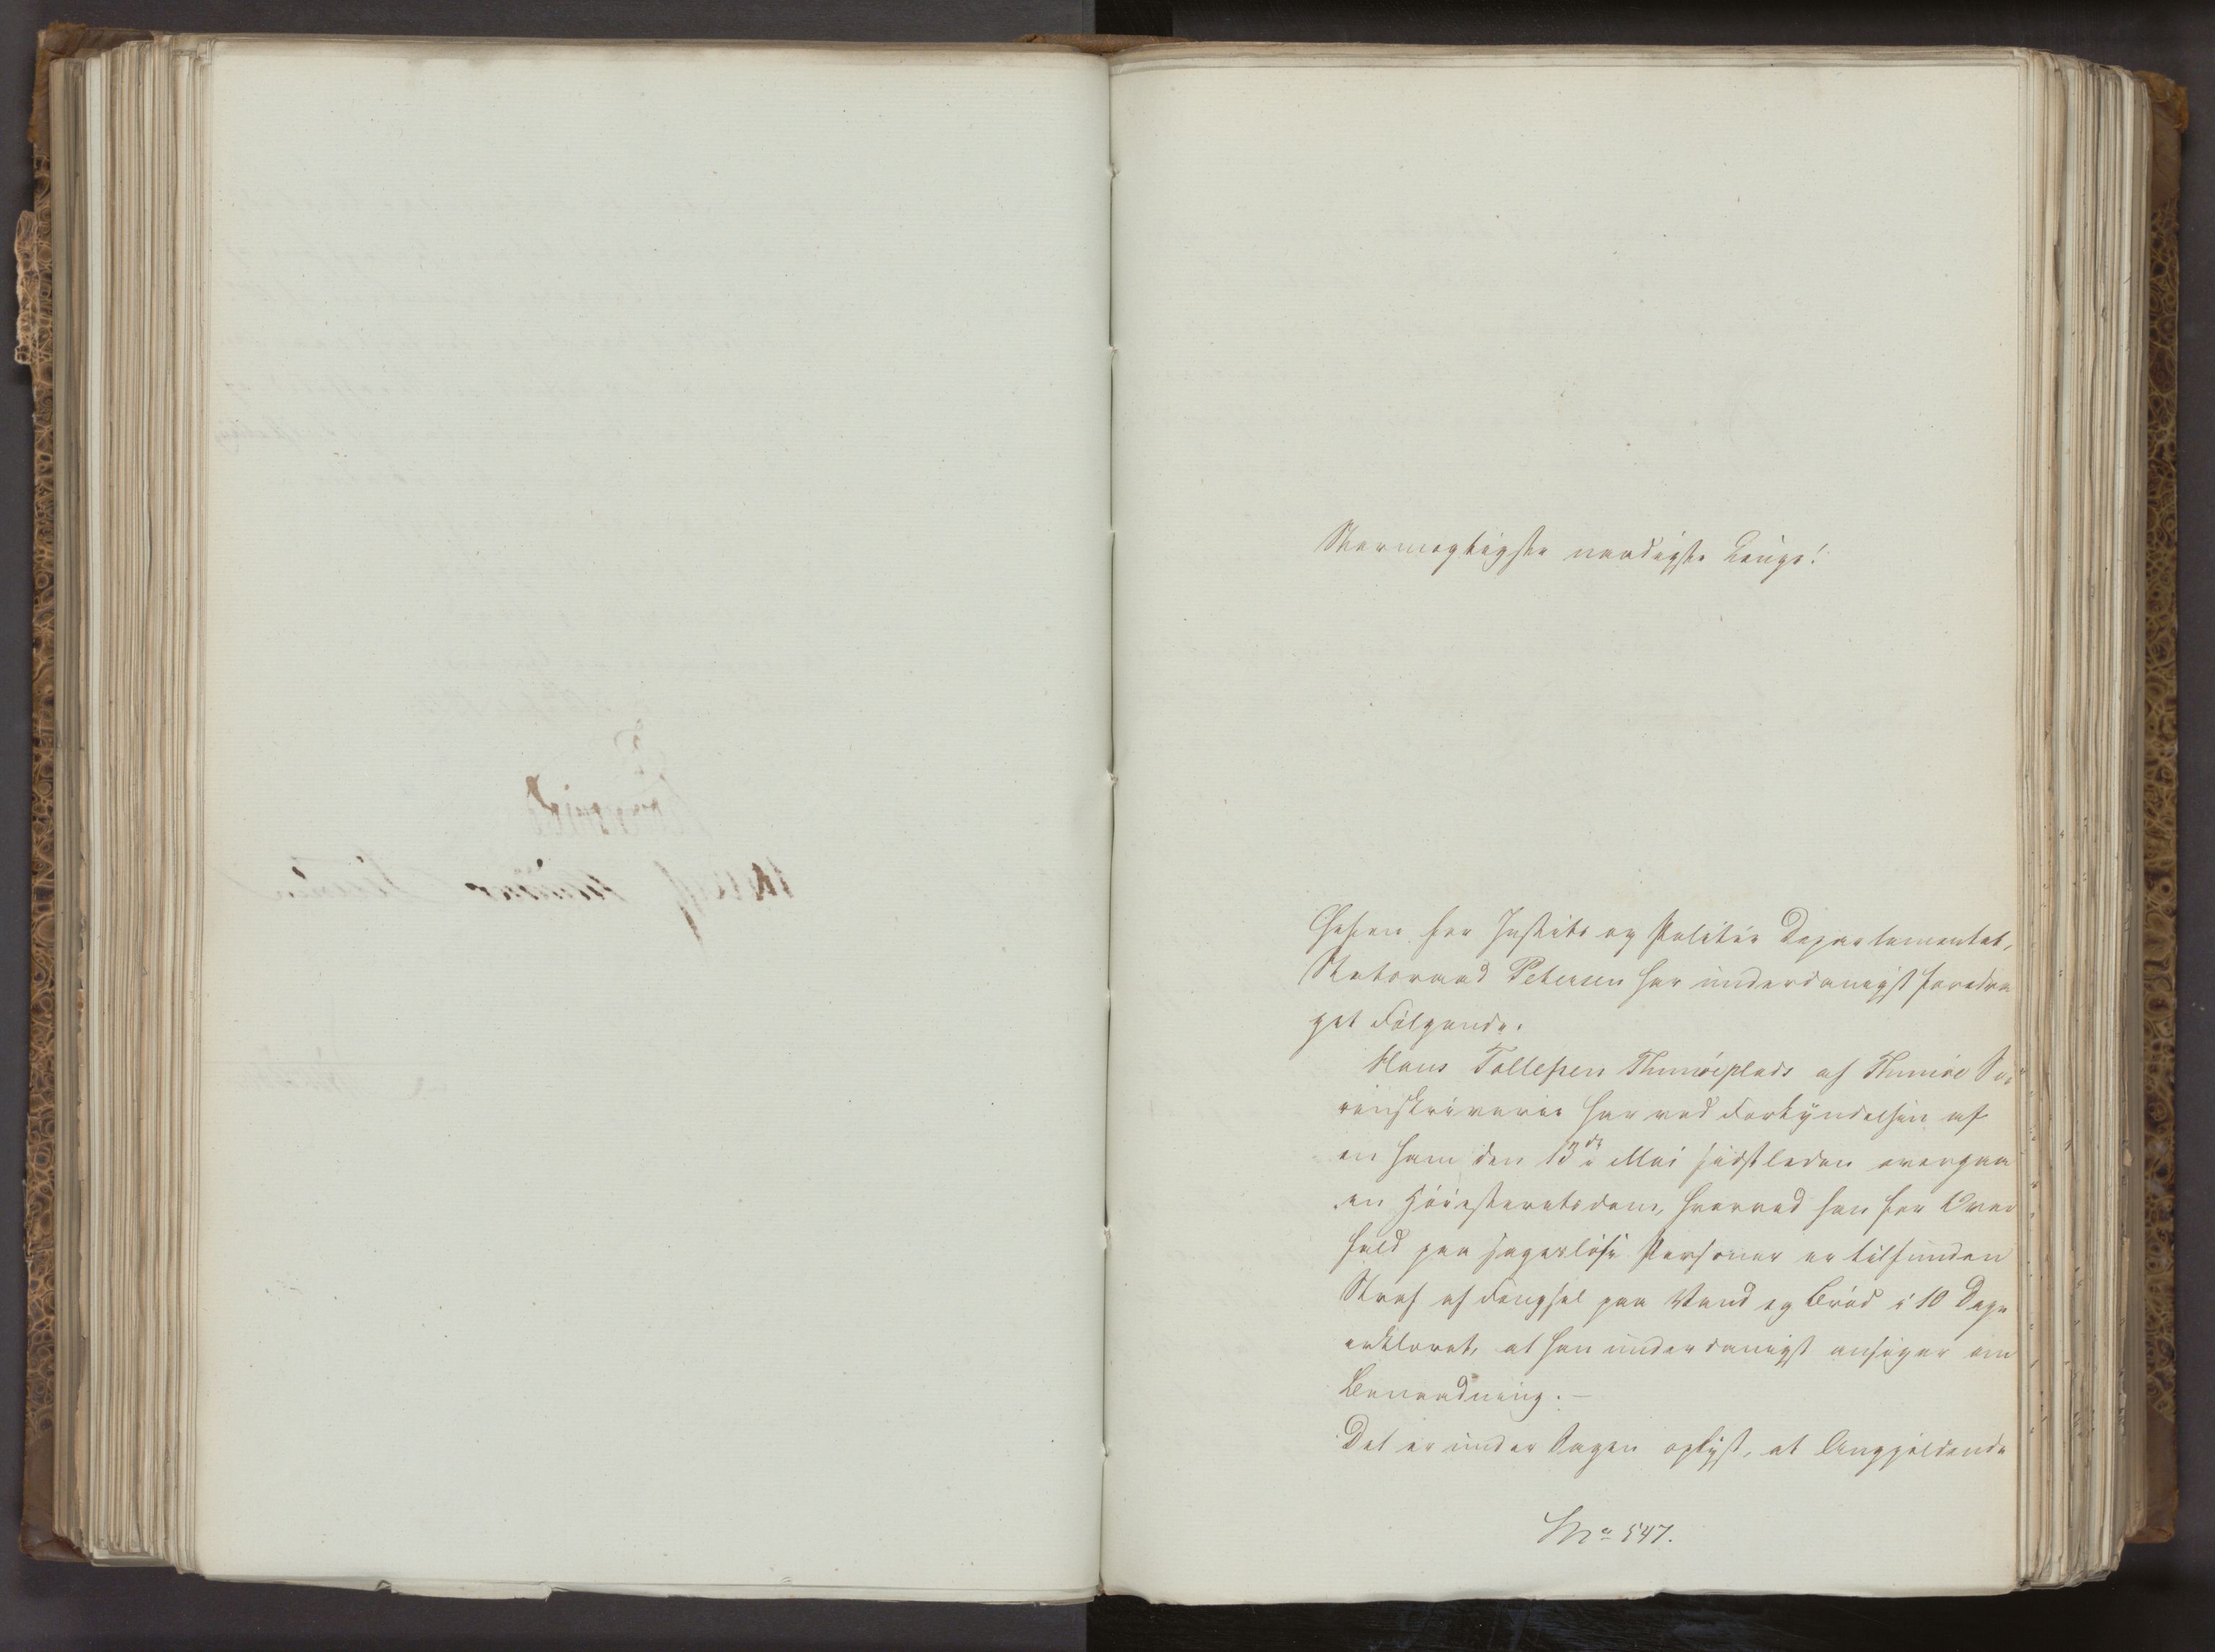 Stormægtigste naadigste Konge!
Chefen for Justits og Politie Departementet,
Statsraad Petersen har underdanigst foredra
get Følgende.
Hans Tollefsen Thunøeplads af Sø
renskriverie har ved Forkyndelsen af
en ham den 13de Mai sidstleden overgaa
en Høiesteretsdom, hvorved han for Over
fald paa sagesløse Personer er tilfunden
Straf af Fængsel paa Vand og Brød i 10 Dage
erklæret, at han underdanigst ansøger om
Benaadning. –
Det er under Sagen oplyst, at Angjældende
No 547.